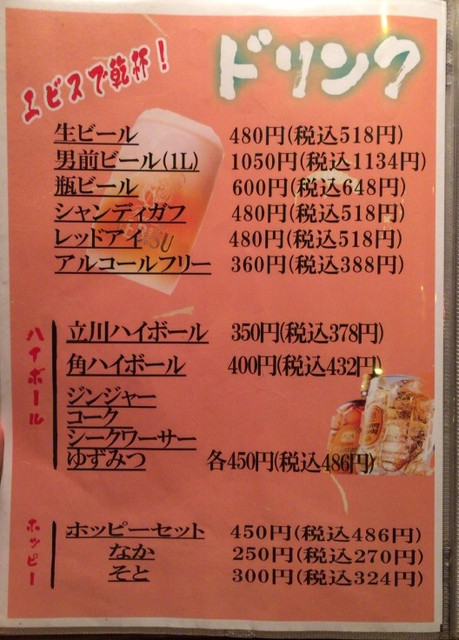 ドリンク
ヱビスで乾杯！
生ビール 480円(税込518円)
男前ビール(1L) 1050円(税込1134円)
瓶ビール 600円(税込648円)
シャンディガフ 480円(税込518円)
レッドアイ 480円(税込518円)
アルコールフリー 360円(税込388円)
ハイボール
立川ハイボール 350円(税込378円)
角ハイボール 400円(税込432円)
ジンジャー
コーク
シークワーサー
ゆずみつ 各450円(税込486円)
ホッピー
ホッピーセット 450円(税込486円)
なか 250円(税込270円)
そと 300円(税込324円)